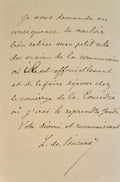 Je vous demande en
conséquence de vouloir
bien retirer mon petit acte
des mains de la commission
où il est officiellement
et de le faire déposer chez
le concierge de la Comédie
où j'ai le reprendre jeudi
Votre dévoué et reconnaissant